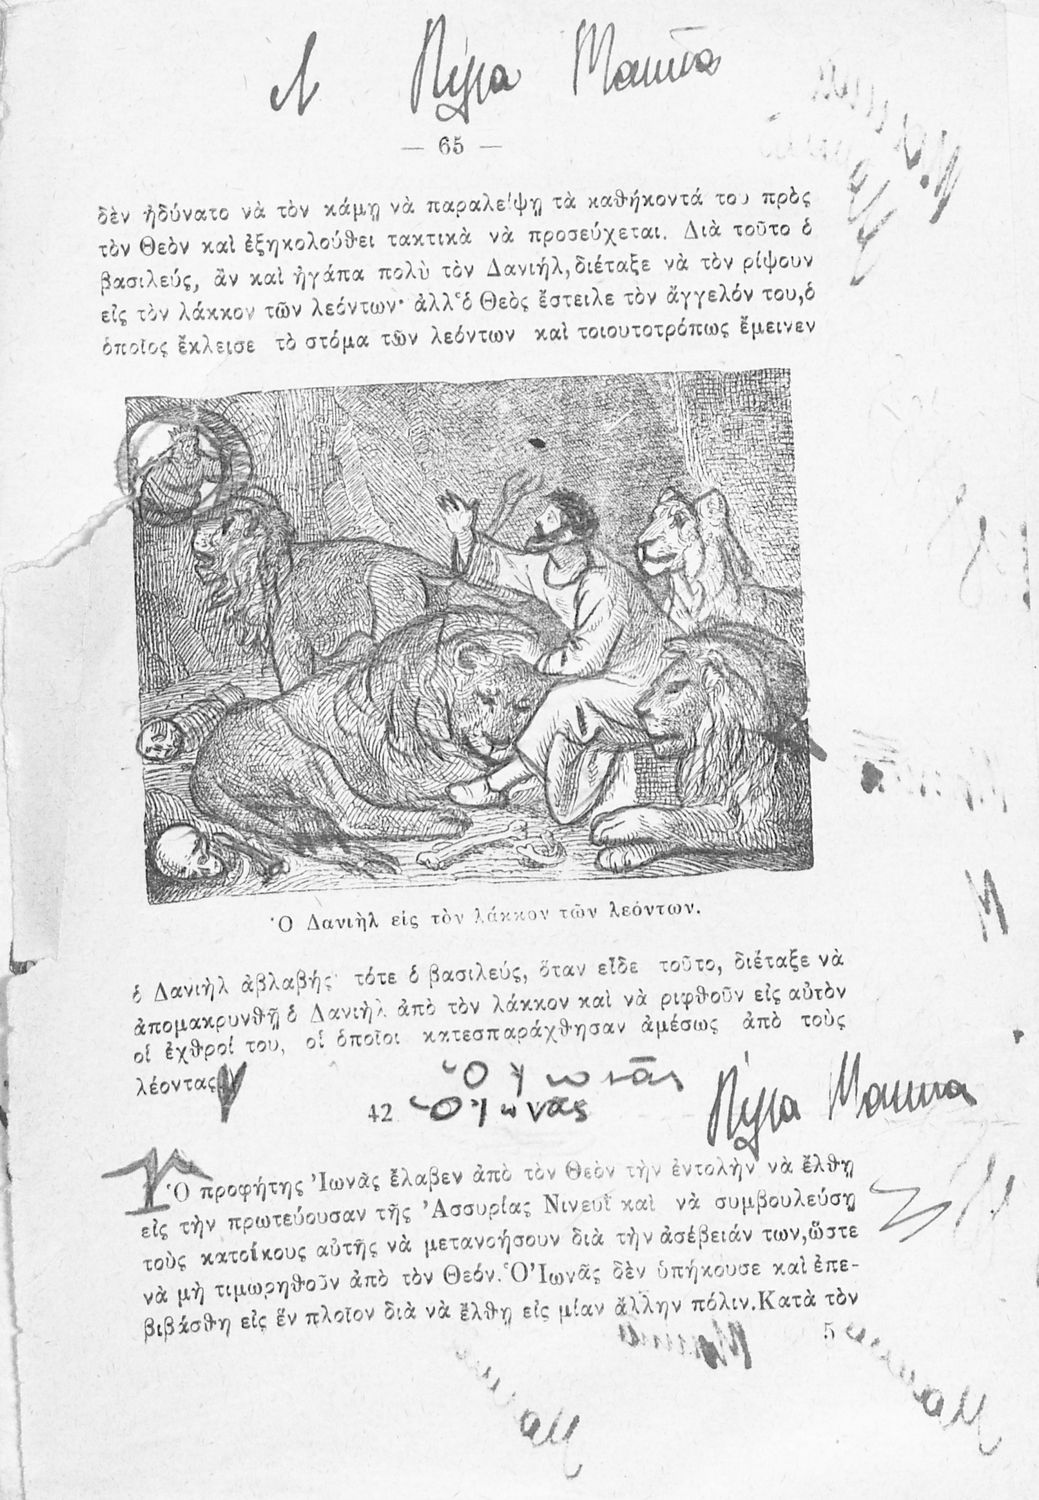 — 65 —
δὲν ἠδύνατο νὰ τὸν κάμῃ νὰ παραλείψῃ τὰ καθήκοντά του πρὸς
τὸν Θεὸν καὶ ἐξηκολούθει τακτικὰ νὰ προσεύχεται. Διὰ τοῦτο ὁ
βασιλεύς, ἂν καὶ ἠγάπα πολὺ τὸν Δανιήλ, διέταξε νὰ τὸν ρίψουν
εἰς τὸν λάκκον τῶν λεόντων· ἀλλ' ὁ Θεὸς ἔστειλε τὸν ἄγγελόν του, ὁ
ὁποῖος ἔκλεισε τὸ στόμα τῶν λεόντων καὶ τοιουτοτρόπως ἔμεινεν
Ὁ Δανιὴλ εἰς τὸν λάκκον τῶν λεόντων.
ὁ Δανιὴλ ἀβλαβής· τότε ὁ βασιλεύς, ὅταν εἶδε τοῦτο, διέταξε νὰ
ἀπομακρυνθῇ ὁ Δανιὴλ ἀπὸ τὸν λάκκον καὶ νὰ ριφθοῦν εἰς αὐτὸν
οἱ ἐχθροί του, οἱ ὁποῖοι κατεσπαράχθησαν ἀμέσως ἀπὸ τοὺς
λέοντας
Ὁ Ἰωνᾶς
42 Ὁ Ἰωνᾶς
Ὁ προφήτης Ἰωνᾶς ἔλαβεν ἀπὸ τὸν Θεὸν τὴν ἐντολὴν νὰ ἔλθῃ
εἰς τὴν πρωτεύουσαν τῆς Ἀσσυρίας Νινευῒ καὶ νὰ συμβουλεύσῃ
τοὺς κατοίκους αὐτῆς νὰ μετανοήσουν διὰ τὴν ἀσέβειάν των, ὥστε
νὰ μὴ τιμωρηθοῦν ἀπὸ τὸν Θεόν. Ὁ Ἰωνᾶς δὲν ὑπήκουσε καὶ ἐπε-
βιβάσθη εἰς ἓν πλοῖον διὰ νὰ ἔλθῃ εἰς μίαν ἄλλην πόλιν. Κατὰ τὸν
5